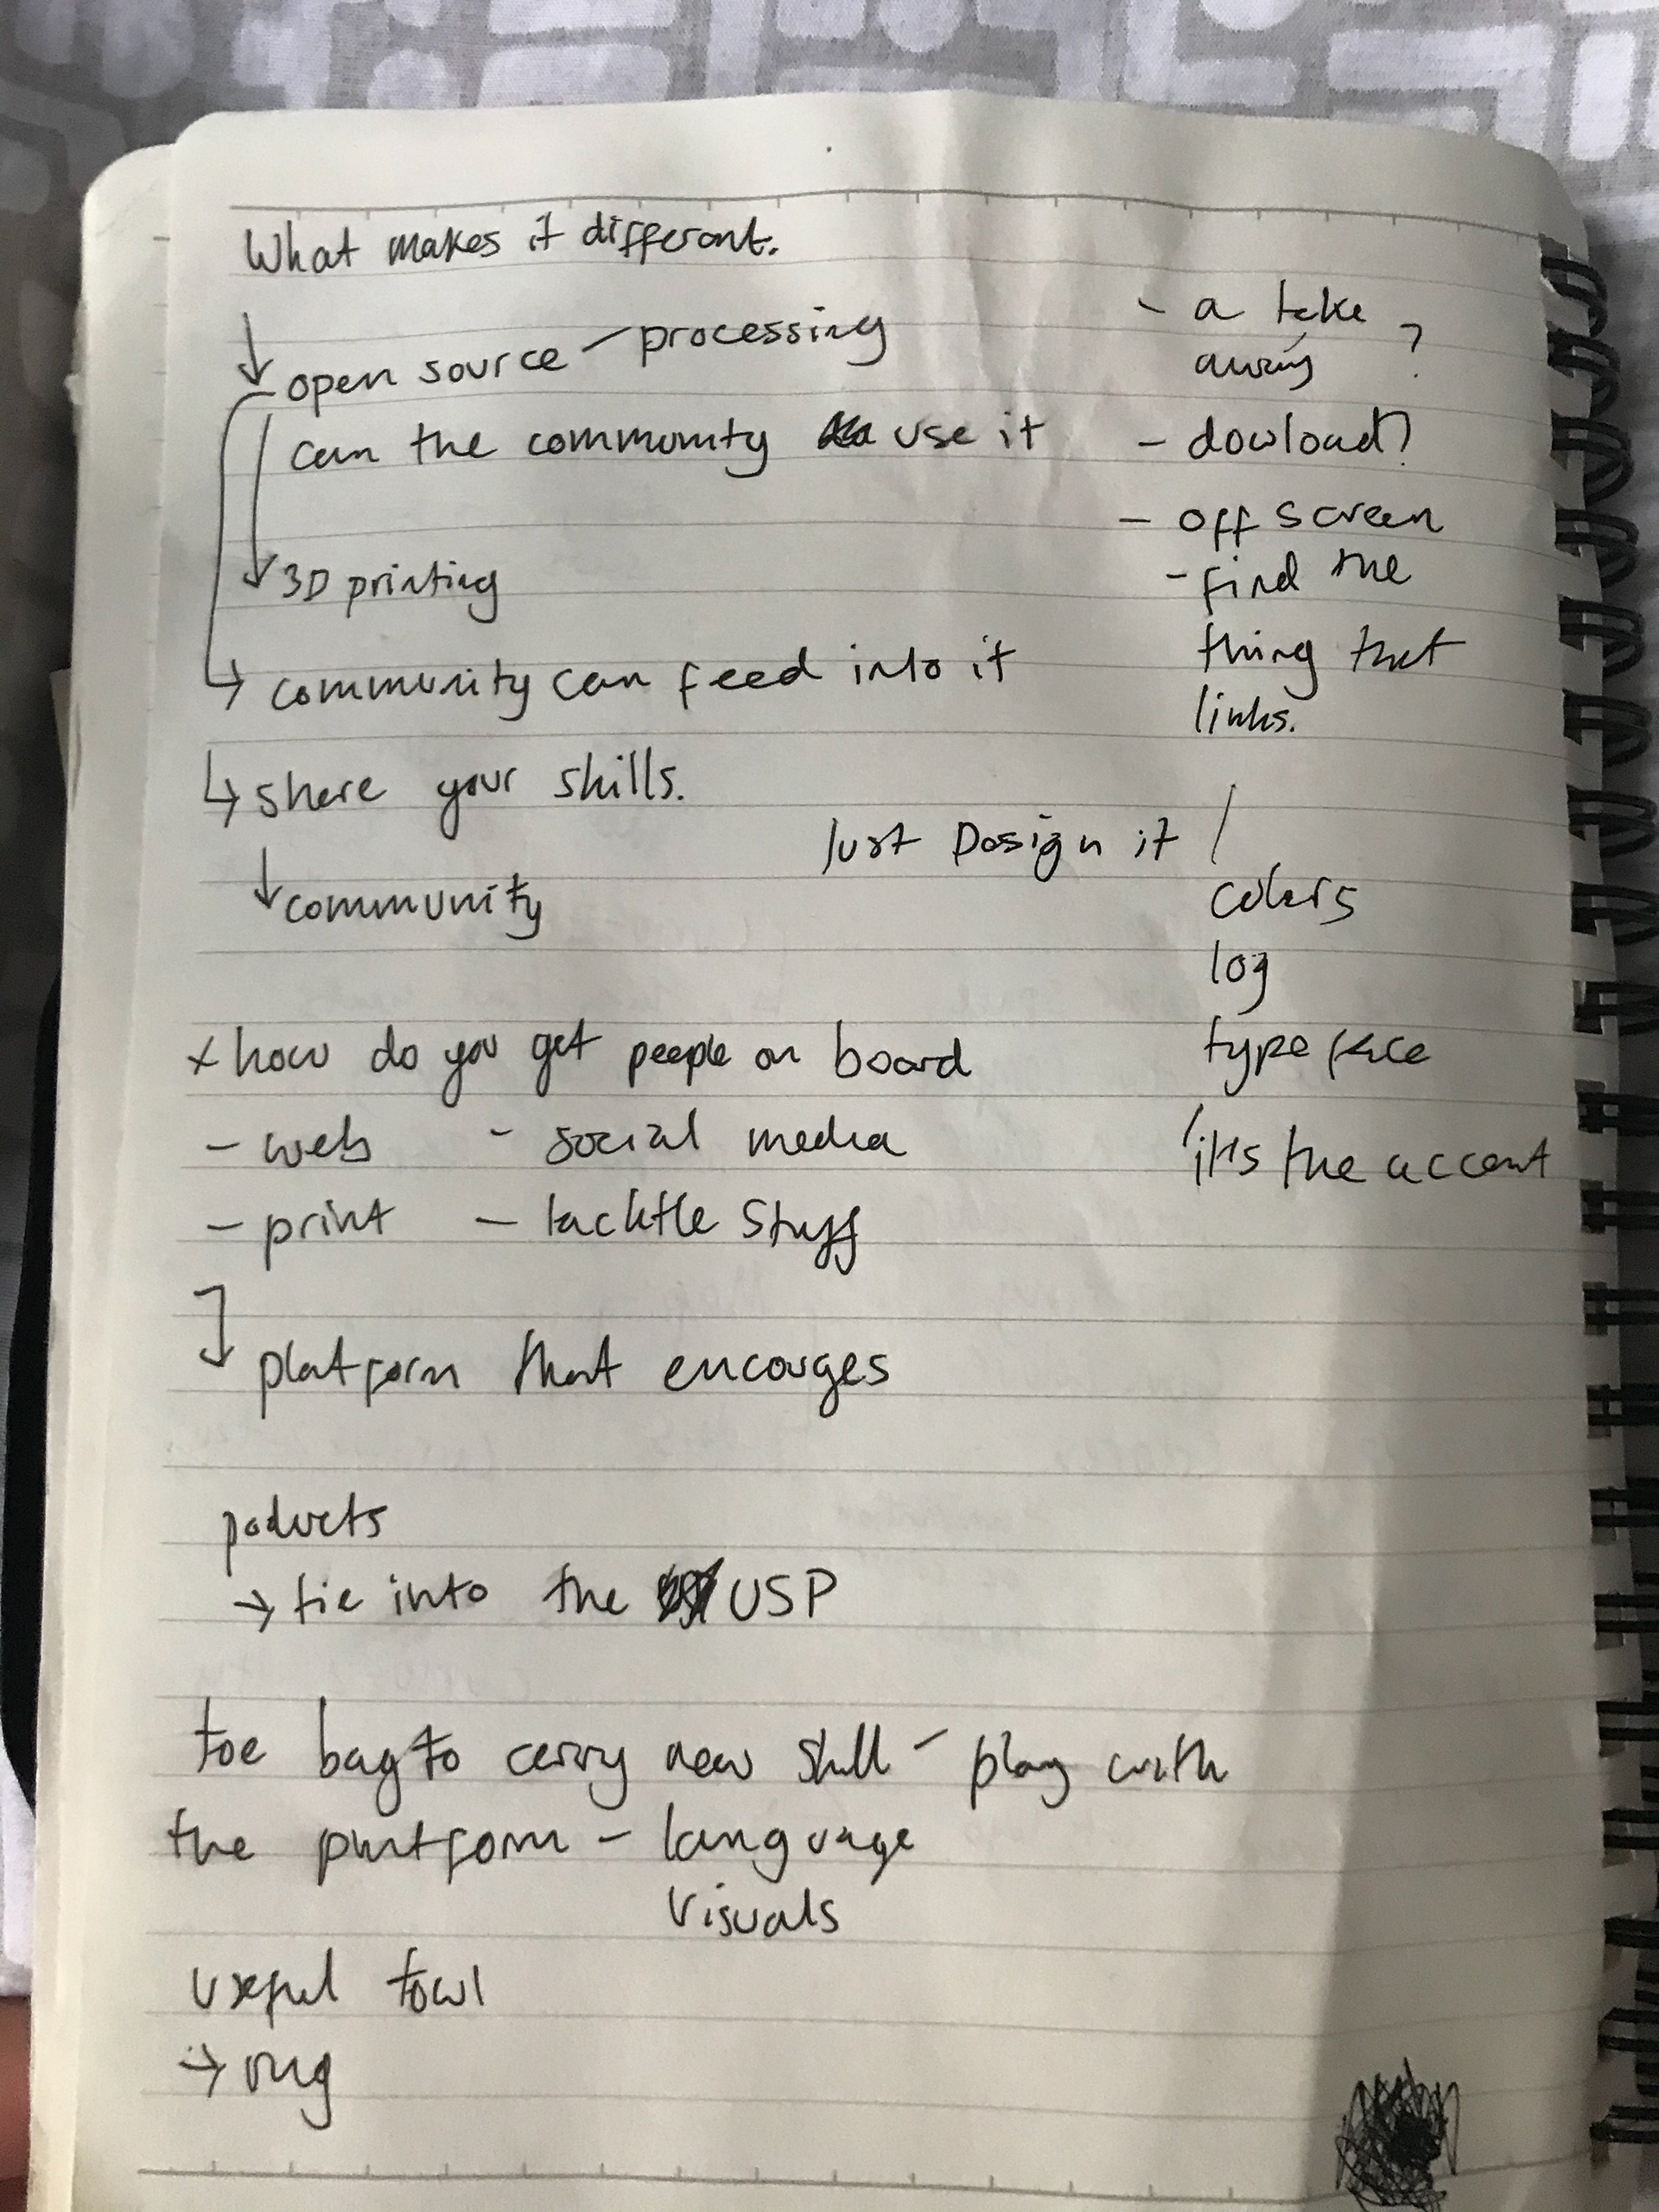 What makes it different.
↓
open source - processing
can the community use it
↓ 3D printing
↳ community can feed into it
↳ share your skills.
↓ community
- a take
away ?
- dowload?
- off screen
- find the
thing that
links.
Just Design it /
colors
log
typeface
it's the accent
x how do you get people on board
- web - social media
- print - tacktle stuff
↓ platform that encourges
poducts
→ tie into the USP
toe bag to carry new skill - play with
the platform - language
visuals
useful towl
→ rug